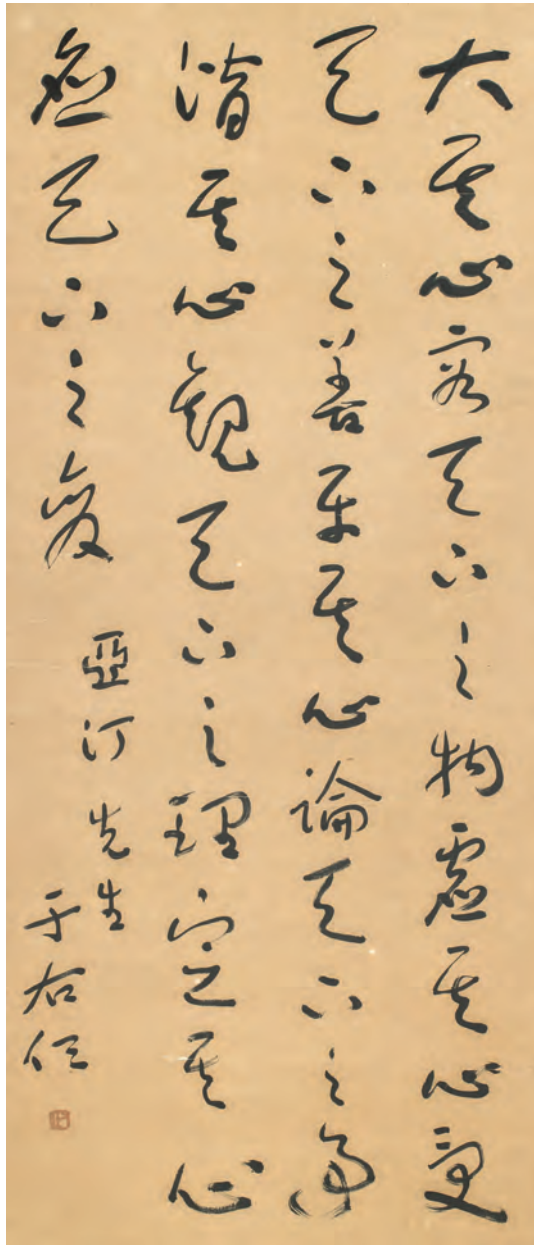 大其心容天下之物虛其心受
天下之善平其心論天下之事
潛其心觀天下之理定其心
應天下之變
亞汀先生
于右任